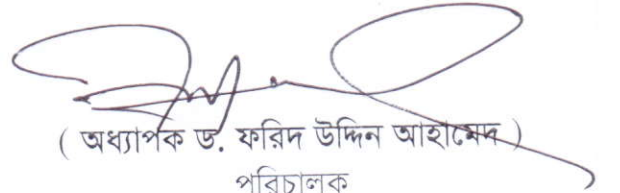 ( অধ্যাপক ড. ফরিদ উদ্দিন আহামেদ )
পরিচালক